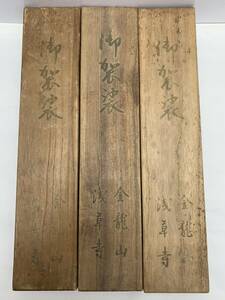 御袈裟
金龍山
浅草寺
御袈裟
金龍山
浅草寺
御袈裟